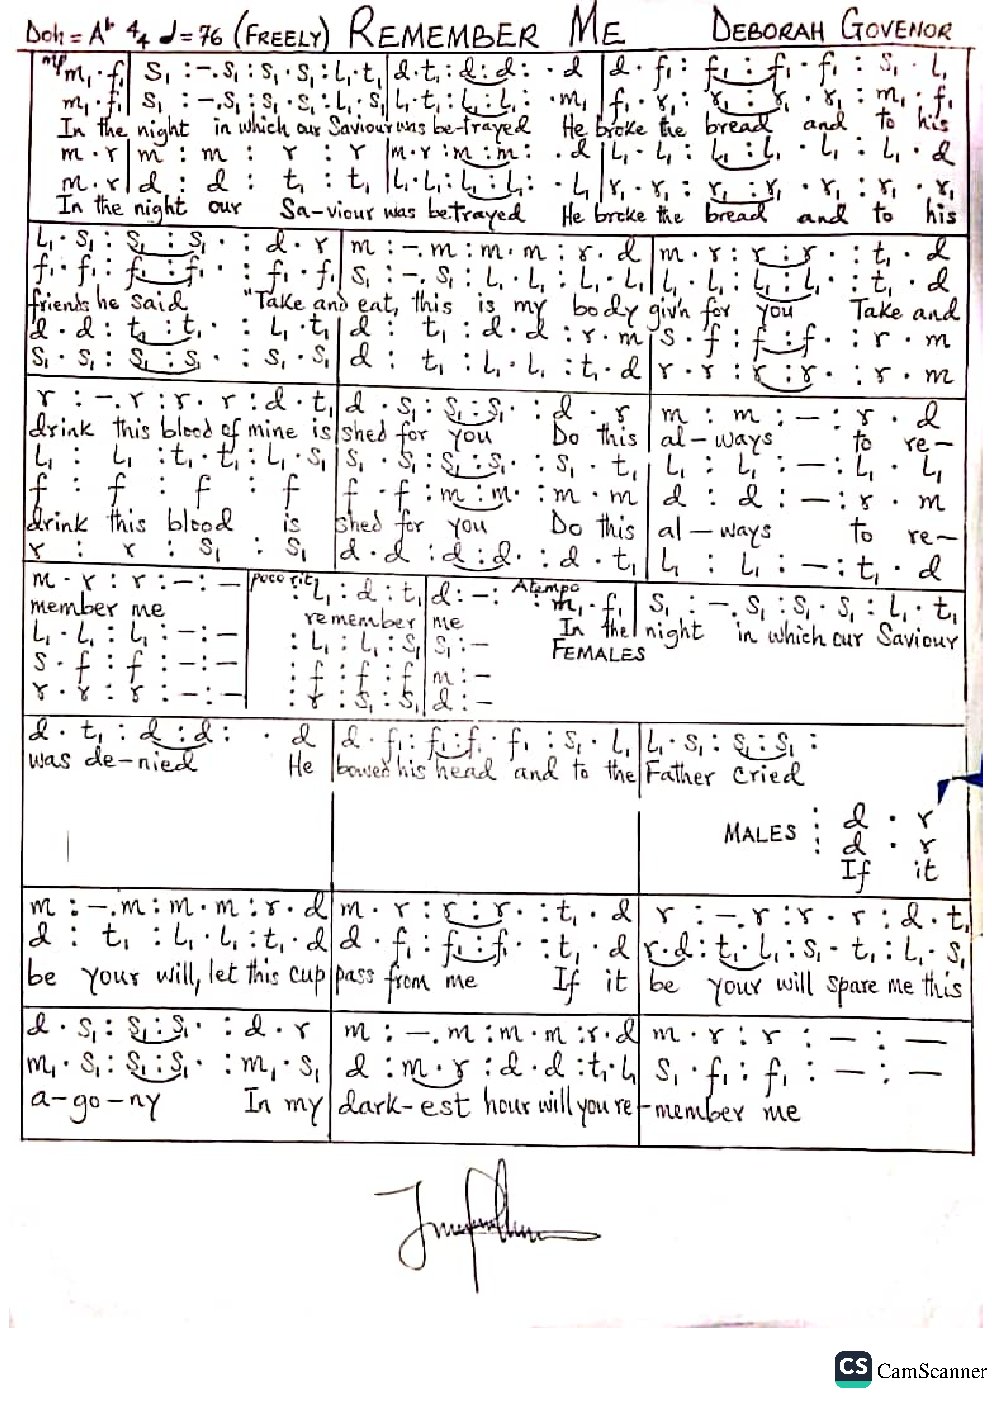 Doh = A♭ 4/4 ♩= 76 (FREELY) REMEMBER ME DEBORAH GOVENOR
mf m₁ . f₁ | S₁ : -. S₁ : S₁ . S₁ : L₁ . t₁ | d . t₁ : d : d : . d | d . f₁ : f₁ : f₁ . f₁ : S₁ . L₁
m₁ . f₁ | S₁ : -. S₁ : S₁ . S₁ : L₁ . S₁ | L₁ . t₁ : L₁ : L₁ : . m₁ | f₁ . r₁ : r₁ : r₁ . r₁ : m₁ . f₁
In the night in which our Saviour was be-trayed He broke the bread and to his
m . r | m : m : r : r | m . r : m : m : . d | L₁ . L₁ : L₁ : L₁ . L₁ : L₁ . d
m . r | d : d : t₁ : t₁ | L₁ . L₁ : L₁ : L₁ : . L₁ | r₁ . r₁ : r₁ : r₁ . r₁ : r₁ . r₁
In the night our Sa-viour was betrayed He broke the bread and to his
L₁ . S₁ : S₁ : S₁ . : d . r | m : -. m : m . m : r . d | m . r : r : r . : t₁ . d
f₁ . f₁ : f₁ : f₁ . : f₁ . f₁ | S₁ : -. S₁ : L₁ . L₁ : L₁ . L₁ | L₁ . L₁ : L₁ : L₁ . : t₁ . d
friends he said "Take and eat, this is my body giv'n for you Take and
d . d : t₁ : t₁ . : L₁ . t₁ | d : t₁ : d . d : r . m | S . f : f : f . : r . m
S₁ . S₁ : S₁ : S₁ . : S₁ . S₁ | d : t₁ : L₁ . L₁ : t₁ . d | r . r : r : r . : r . m
r : -. r : r . r : d . t₁ | d . S₁ : S₁ : S₁ . : d . r | m : m : - : r . d
drink this blood of mine is shed for you Do this al-ways to re-
L₁ : L₁ : t₁ . t₁ : L₁ . S₁ | S₁ . S₁ : S₁ : S₁ . : S₁ . t₁ | L₁ : L₁ : - : L₁ . L₁
f : f : f : f | f . f : m : m . : m . m | d : d : - : r . m
drink this blood is shed for you Do this al-ways to re-
r : r : S₁ : S₁ | d . d : d : d . : d . t₁ | L₁ : L₁ : - : t₁ . d
m . r : r : - : - | poco rit : L₁ : d : t₁ | d : - : Atempo : m₁ . f₁ | S₁ : -. S₁ : S₁ . S₁ : L₁ . t₁
member me remember me In the night in which our Saviour
L₁ . L₁ : L₁ : - : - | : L₁ : L₁ : S₁ | S₁ : - FEMALES
S . f : f : - : - | : f : f : f | m : -
r . r : r : - : - | : r : S₁ : S₁ | d : -
d . t₁ : d : d : . d | d . f₁ : f₁ : f₁ . f₁ : S₁ . L₁ | L₁ . S₁ : S₁ : S₁ :
was de-nied He bowed his head and to the Father cried
MALES : d . r
: d . r
If it
m : -. m : m . m : r . d | m . r : r : r . : t₁ . d | r : -. r : r . r : d . t₁
d : t₁ : L₁ . L₁ : t₁ . d | d . f₁ : f₁ : f₁ . : t₁ . d | r . d : t₁ . L₁ : S₁ . t₁ : L₁ . S₁
be your will, let this cup pass from me If it be your will spare me this
d . S₁ : S₁ : S₁ . : d . r | m : -. m : m . m : r . d | m . r : r : - : -
m₁ . S₁ : S₁ : S₁ . : m₁ . S₁ | d : m . r : d . d : t₁ . L₁ | S₁ . f₁ : f₁ : - : -
a-go-ny In my dark-est hour will you re-member me
CS CamScanner